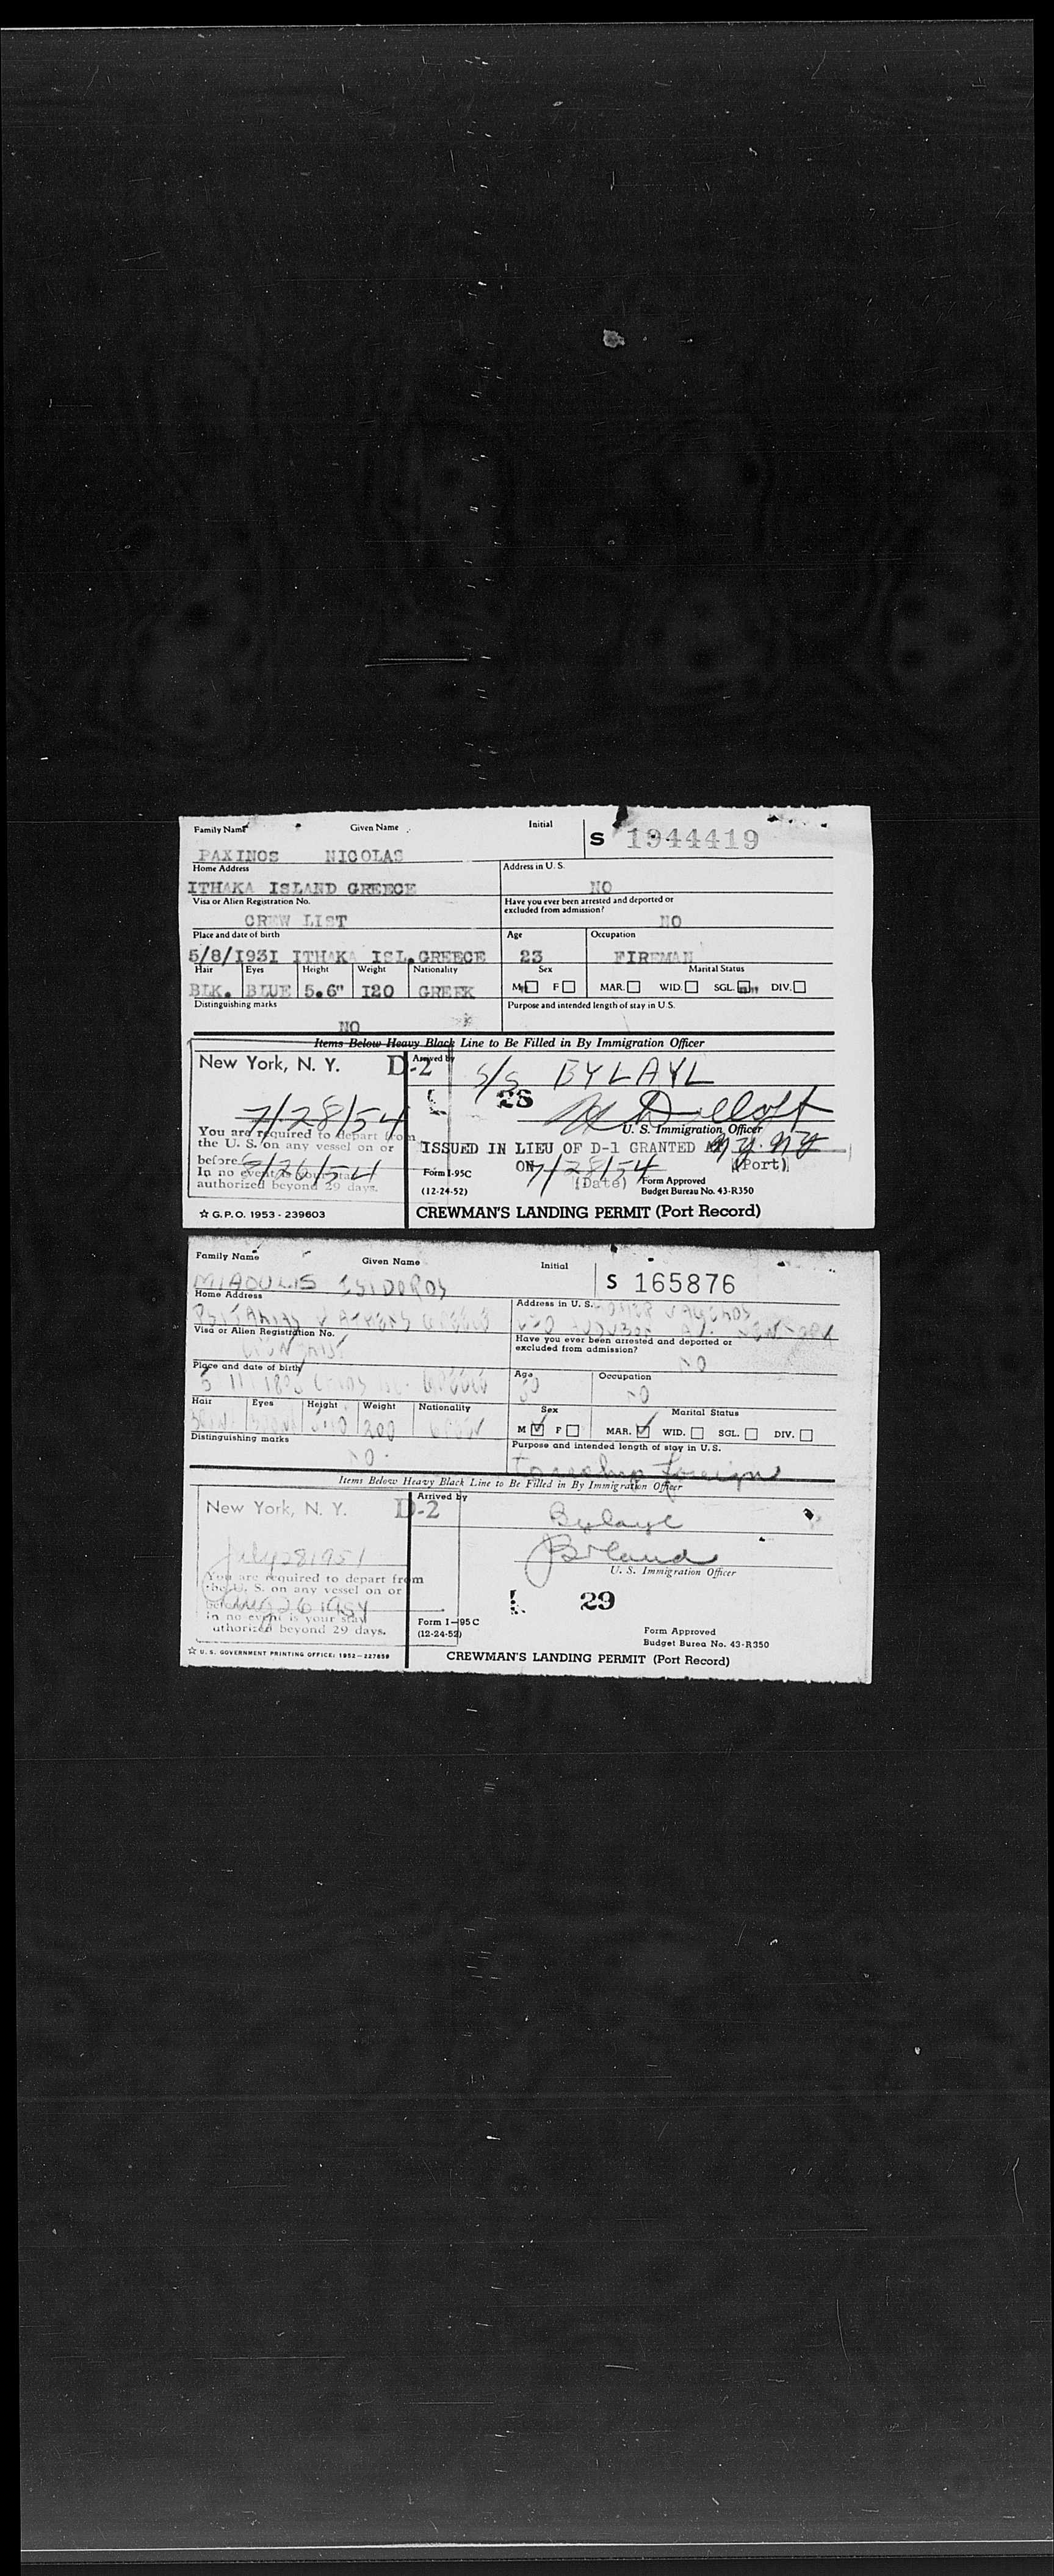 Family Name Given Name Initial
S 1944419
PAXINOS NICOLAS
Home Address Address in U. S.
ITHAKA ISLAND GREECE NO
Visa or Alien Registration No. Have you ever been arrested and deported or
excluded from admission?
CREW LIST NO
Place and date of birth Age Occupation
5/8/1931 ITHAKA ISL. GREECE 23 FIREMAN
Hair Eyes Height Weight Nationality Sex Marital Status
BLK. BLUE 5.6" 120 GREEK M F MAR. WID. SGL. DIV.
Distinguishing marks Purpose and intended length of stay in U.S.
NO
Items Below Heavy Black Line to Be Filled in By Immigration Officer
New York, N. Y. D-2 Arrived by S/S BYLAYL
28
7/28/54
U. S. Immigration Officer
You are required to depart from
the U. S. on any vessel on or
before 8/26/54
In no event is your stay
authorized beyond 29 days.
ISSUED IN LIEU OF D-1 GRANTED AT N.Y. NY
ON 7/28/54 (Port)
(Date)
Form I-95C
(12-24-52)
Form Approved
Budget Bureau No. 43-R350
☆ G.P.O. 1953 - 239603 CREWMAN'S LANDING PERMIT (Port Record)
Family Name Given Name Initial
S 165876
MIAOULIS ISIDOROS
Home Address Address in U. S.
Visa or Alien Registration No. Have you ever been arrested and deported or
excluded from admission?
NO
Place and date of birth Age Occupation
NO
Hair Eyes Height Weight Nationality Sex Marital Status
200 M F MAR. WID. SGL. DIV.
Distinguishing marks Purpose and intended length of stay in U.S.
NO. foreign
Items Below Heavy Black Line to Be Filled in By Immigration Officer
New York, N. Y. D-2 Arrived by
Bylayl
U. S. Immigration Officer
You are required to depart from
the U. S. on any vessel on or
before Aug 26 1954
In no event is your stay
authorized beyond 29 days.
29
Form I-95C
(12-24-52)
Form Approved
Budget Burea No. 43-R350
☆ U. S. GOVERNMENT PRINTING OFFICE: 1952-227859 CREWMAN'S LANDING PERMIT (Port Record)